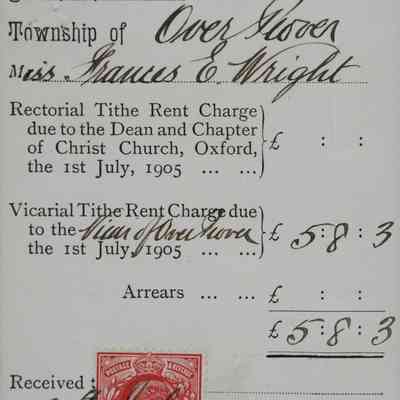 Township of Over Hover
Miss Frances E. Wright
Rectorial Tithe Rent Charge
due to the Dean and Chapter
of Christ Church, Oxford, £ : :
the 1st July, 1905 ... ...
Vicarial Tithe Rent Charge due
to the Vicar of Over Hover £ 5 : 8 : 3
the 1st July, 1905 ... ...
Arrears ... ... £ : :
£ 5 : 8 : 3
Received
POSTAGE & REVENUE